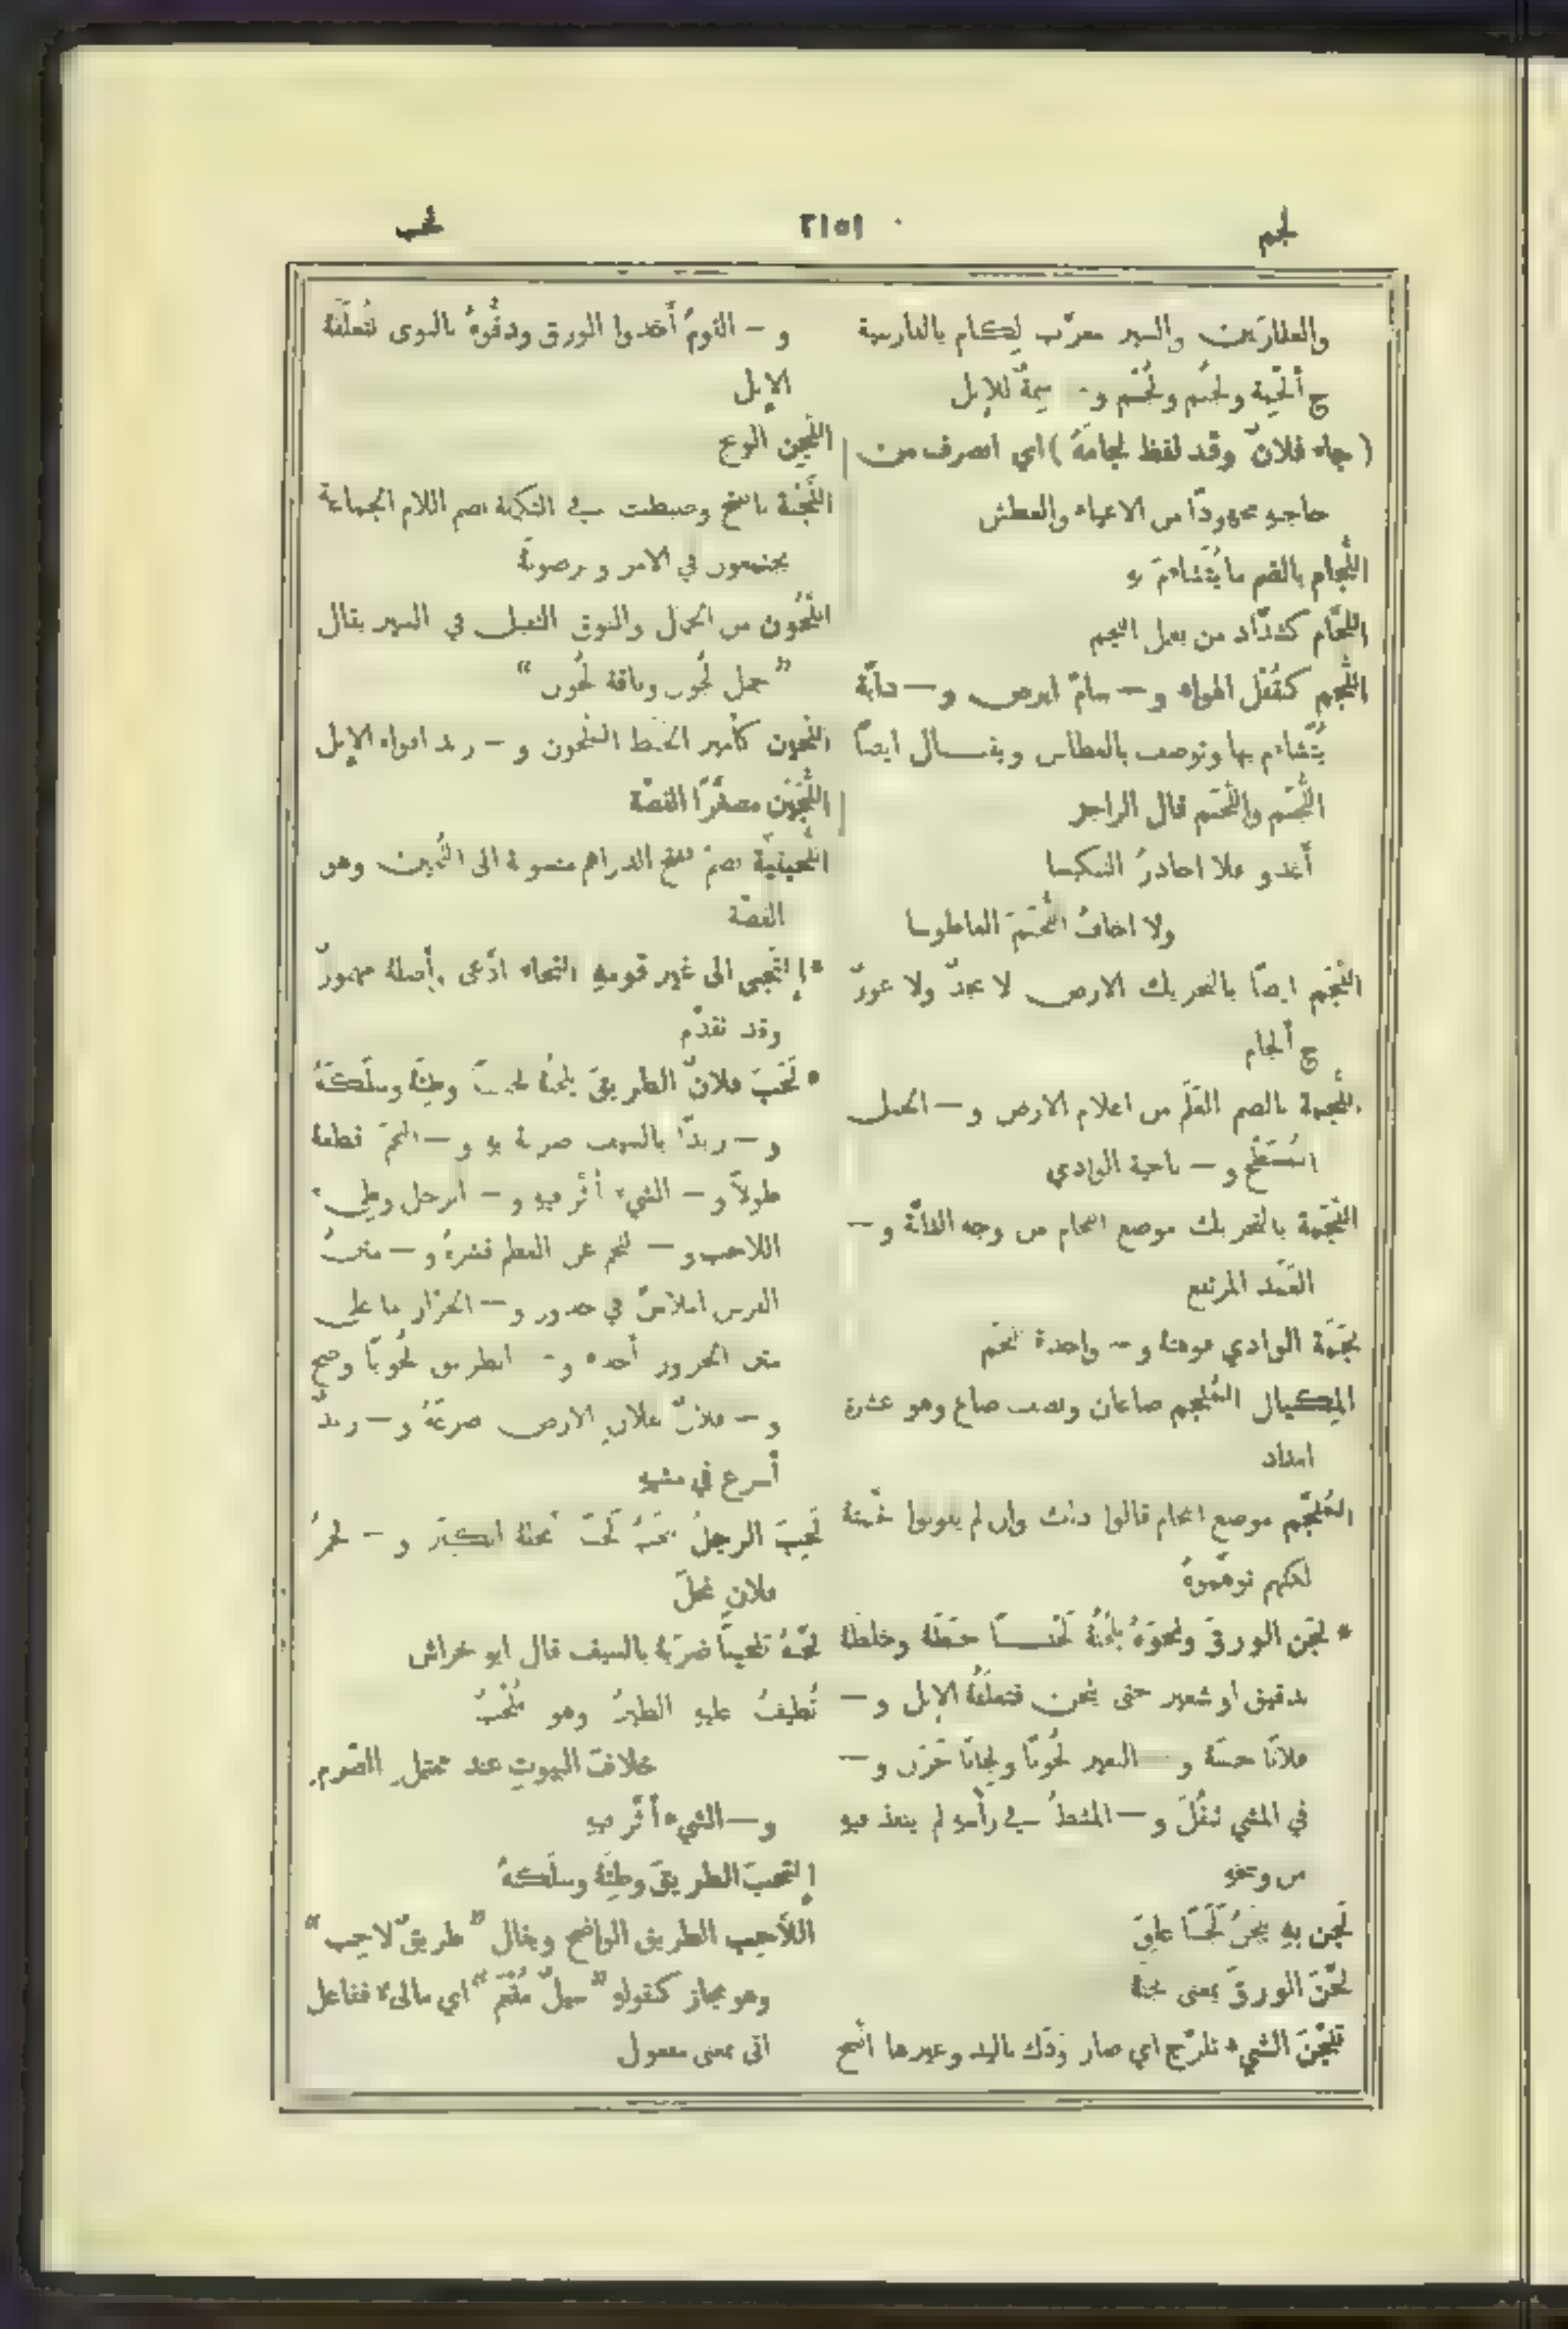 لجم
٢١٥١
لحب
والعذارَين والسير معرّب لِكام بالفارسية
ج ألجِمة ولجُم ولُجْم و — سِمةٌ للإبل
( جاء فلانٌ وقد لفظ لجامهُ ) اي انصرف من
حاجتهِ مجهودًا من الاعياء والعطش
اللُّجام بالضم ما يُتشاءَم بهِ
اللجَّام كشدَّاد من يعمل اللجم
اللُّجم كقُفل الهواء و — سامّ ابرص و — دابَّة
يُتَشاءم بها وتوصف بالعطاس ويقال ايضًا
اللُّجَم واللَّجَم قال الراجز
أغدو فلا احاذرُ الشكيسا
ولا اخافُ اللُّجَمَ العاطوسا
اللَّجَم ايضًا بالتحريك الارض لا نجدٌ ولا غورٌ
ج ألجام
اللُّجمة بالضم العَلَم من اعلام الارض و — الجبل
المُسَطَّح و — ناحية الوادي
اللَّجَمة بالتحريك موضع اللجام من وجه الدابَّة و —
الصَّمد المرتفع
لجَمَة الوادي فوهتهُ و — واحدة اللجم
المِكيال المُلجم صاعان ونصف صاع وهو عشرة
امداد
المُلجَّم موضع اللجام قالوا ذلك وان لم يقولوا لجَّمتهُ
لكنهم توهَّموهُ
* لجَن الورقَ ونحوَهُ يلجُنُهُ لَجْنًا خبَطَهُ وخلطَهُ
بدقيق او شعير حتى يثخن فتعلَفُهُ الإبل و —
فلانًا حبسَهُ و — البعير لُجونًا ولِجانًا حَرَن و —
في المشي ثقُلَ و — المشطُ في رأسهِ لم ينفذ فيهِ
من وسخهِ
لَجِن بهِ يلجَنُ لَجَنًا علِقَ
لجَّنَ الورقَ بمعنى لجنهُ
تلجَّنَ الشيءُ تلزَّج اي صار وذلك باليد وغيرها اتسخ
و — القومُ أخذوا الورق ودقُّوهُ بالنوى لتعلَفَهُ
الإبل
اللَّجِن الوسخ
اللَّجْنة بالفتح وضبطت في التكملة بضم اللام الجماعة
يجتمعون في الامر ويرضونهُ
اللَّجُون من الجمال والنوق الثقيل في السير يقال
”جمل لَجُون وناقة لَجُون“
اللَّجِين كأَمير الخبَط المَلجون و — زبد افواه الإبل
اللُّجَيْن مصغَّرًا الفضَّة
اللُّجَينيَّة بضمّ ففتح الدراهم منسوبة الى اللُّجين وهو
الفضَّة
* إلتجى الى غير قومهِ التجاء ادَّعى وأصلهُ مهموزٌ
وقد تقدَّم
* لَحَبَ فلانٌ الطريقَ يلحبُهُ لحبًا وطِئَهُ وسلَكَهُ
و — زيدًا بالسيف ضربهُ بهِ و — اللحمَ قطعهُ
طولاً و — الشيءَ أثَّر فيهِ و — الرجل وطيء
اللاحب و — اللحم عن العظم قشرهُ و — متنُ
الفرس املاسَّ في حدور و — الجزَّار ما على
متن الجزور أخذهُ و — الطريق لُحوبًا وضح
و — فلانٌ بفلانٍ الارض صرعَهُ و — زيدٌ
أسرع في مشيهِ
لَحِبَ الرجلُ يلحَبُ لَحَبًا نحلهُ الكِبَر و — لحمُ
فلانٍ نحلَ
لحَّبهُ تلحيبًا ضربَهُ بالسيف قال ابو خراش
تُطيفُ عليهِ الطيرُ وهو مُلَحَّبٌ
خلافَ البيوتِ عند محتملِ الصَّرمِ
و — الشيءَ أثَّر فيهِ
إلتحبَ الطريقَ وطِئَهُ وسلَكهُ
اللَّاحِب الطريق الواضح ويقال ”طريقٌ لاحِب“
وهو مجاز كقولهِ ”سيلٌ مُفْعَم“ اي مالئ ففاعل
اتى بمعنى مفعول